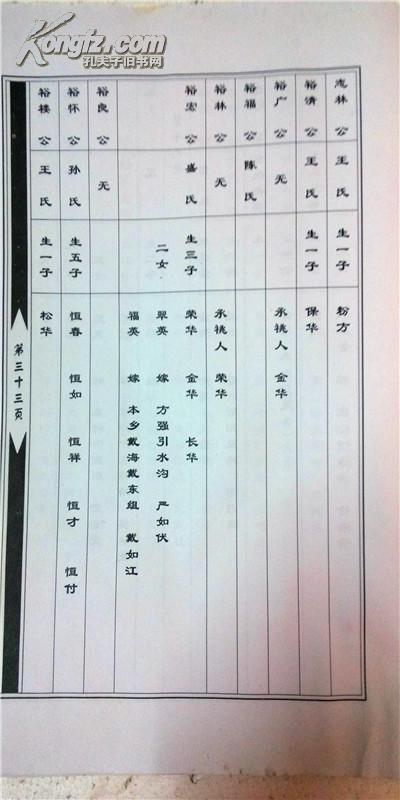 Kongfz.com
孔夫子旧书网
志林公 王氏 生一子 粉方
裕清公 王氏 生一子 保华
裕广公 无 承祧人 金华
裕福公 陈氏
裕林公 无 承祧人 荣华
裕宏公 盛氏 生三子 荣华 金华 长华
二女 翠英 嫁 方强引水沟 严如伏
福英 嫁 本乡戴海戴东组 戴如江
裕良公 无
裕怀公 孙氏 生五子 恒春 恒如 恒祥 恒才 恒付
裕楼公 王氏 生一子 松华
第三十三页